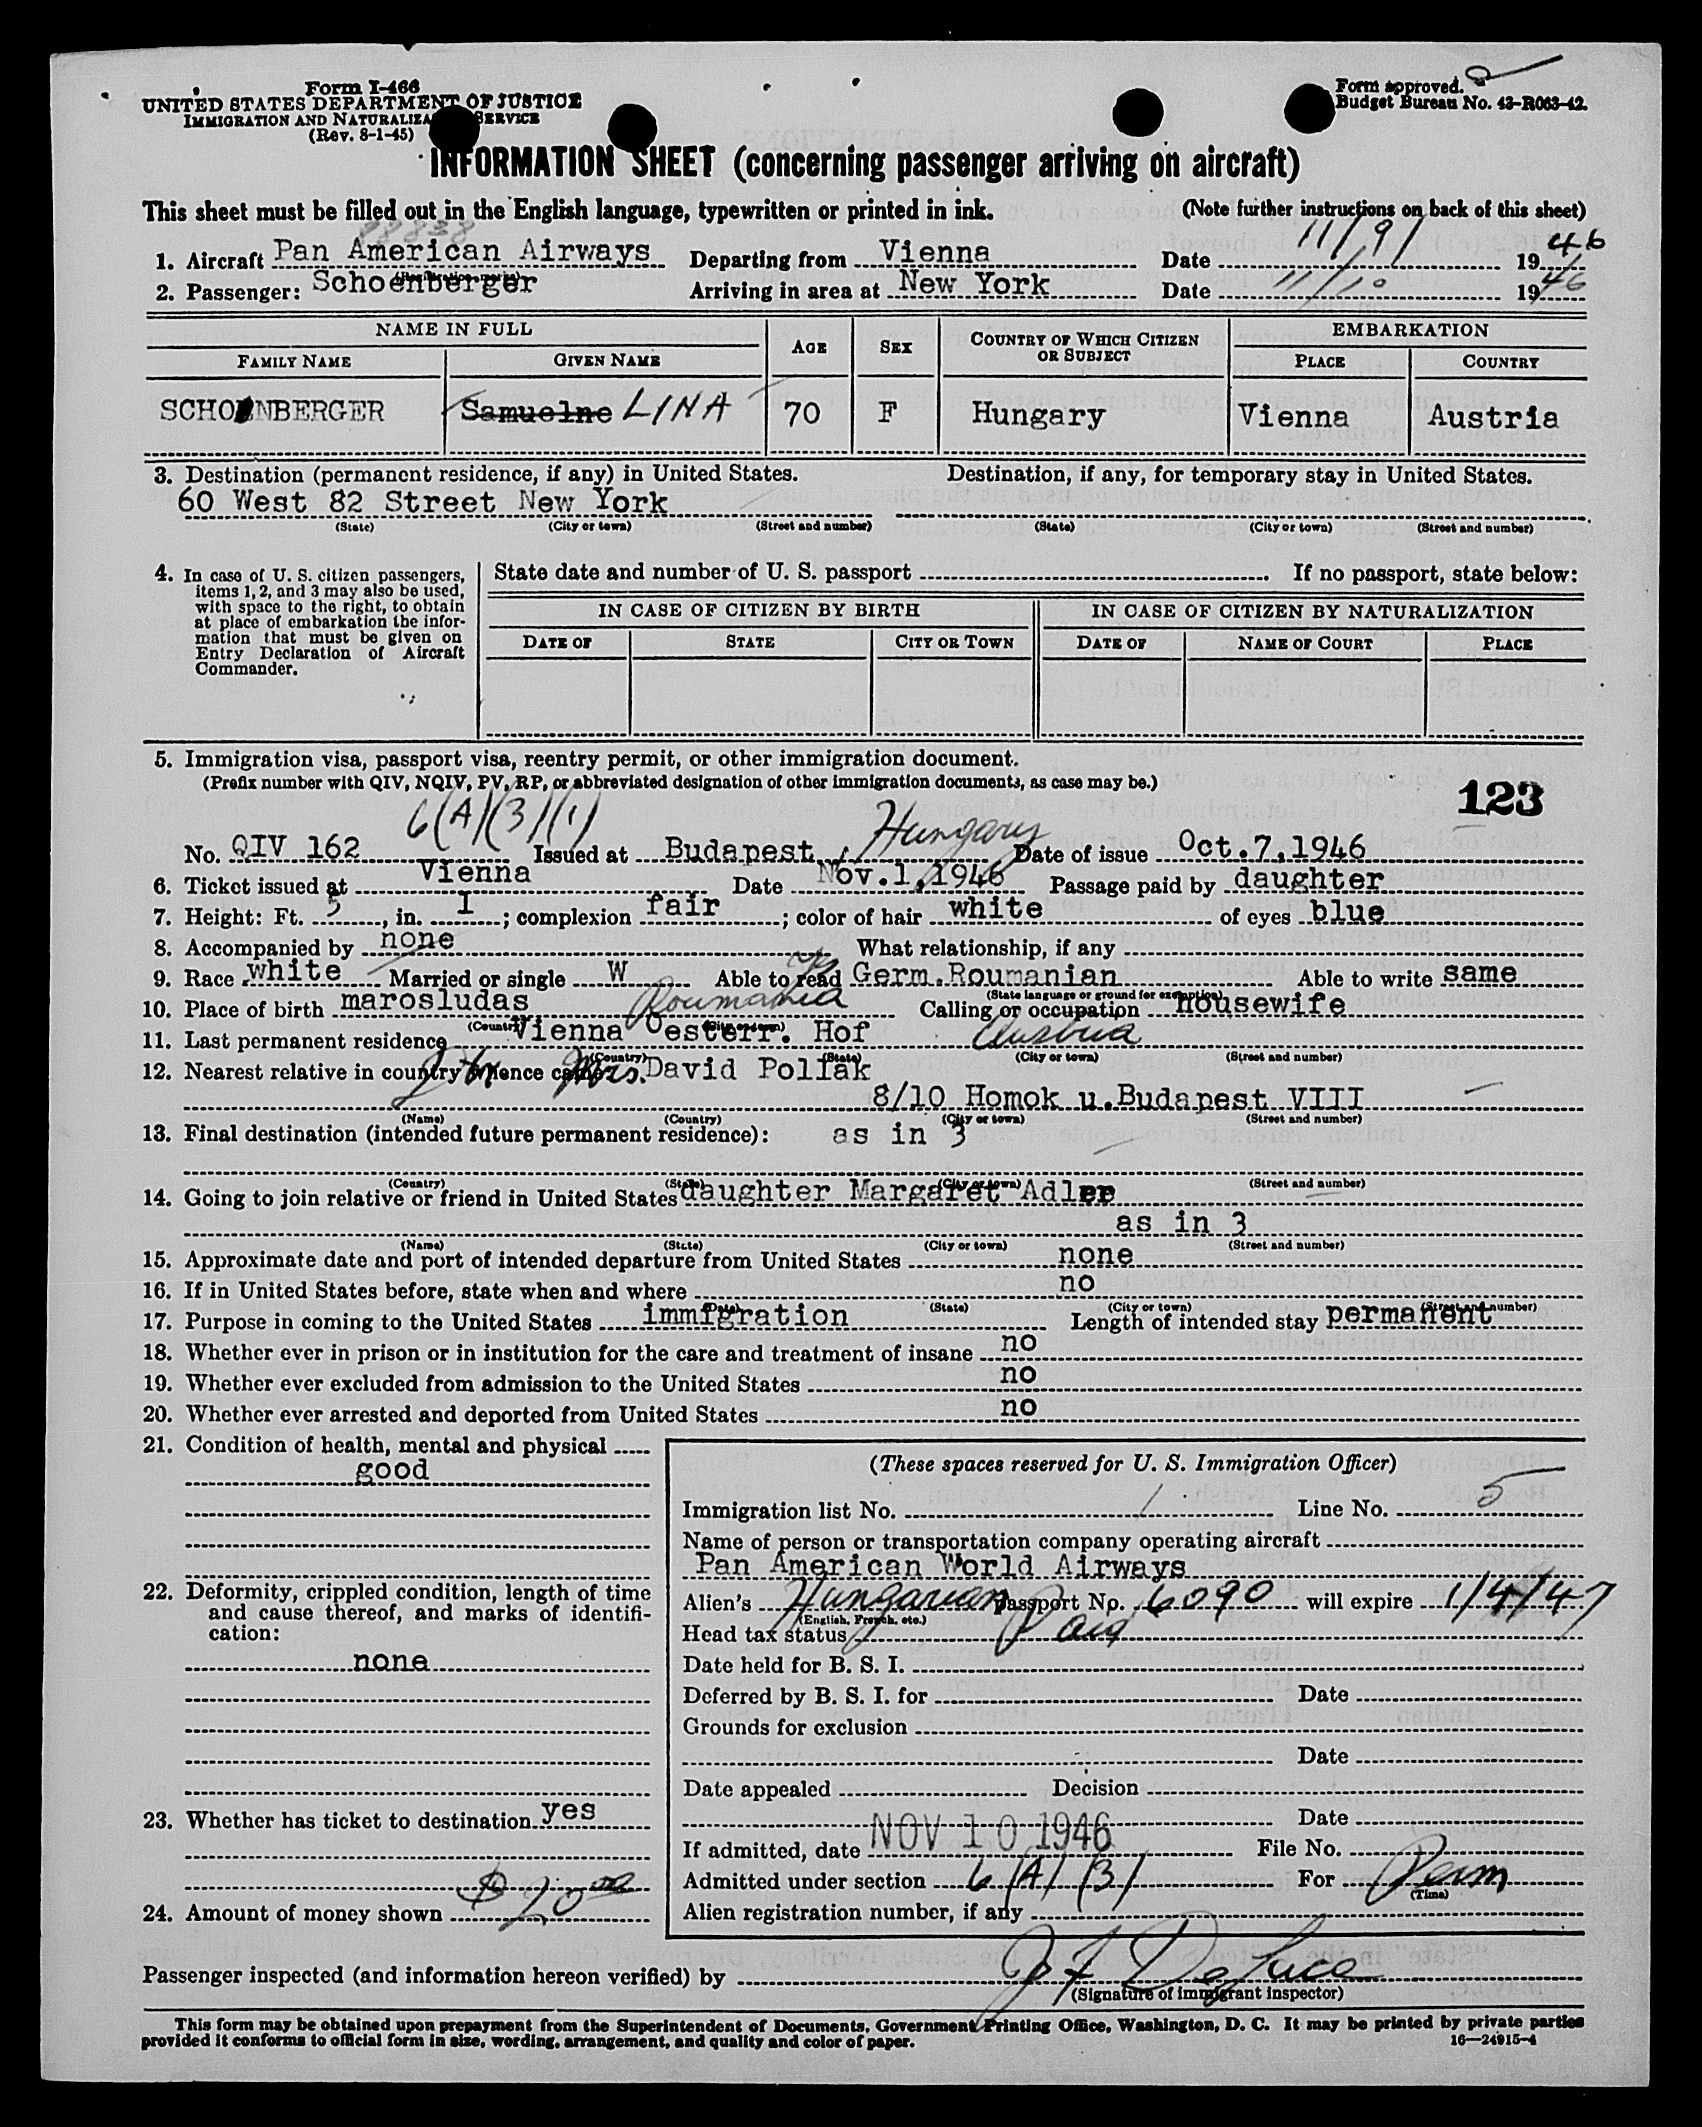 Form I-466
UNITED STATES DEPARTMENT OF JUSTICE
IMMIGRATION AND NATURALIZA SERVICE
(Rev. 8-1-45)
Form approved.
Budget Bureau No. 43-R063-42.
INFORMATION SHEET (concerning passenger arriving on aircraft)
This sheet must be filled out in the English language, typewritten or printed in ink. (Note further instructions on back of this sheet)
88838
1. Aircraft Pan American Airways Departing from Vienna Date 11/9/ 1946
(Registration marks)
2. Passenger: Schoenberger Arriving in area at New York Date 11/10 1946
NAME IN FULL AGE SEX COUNTRY OF WHICH CITIZEN OR SUBJECT EMBARKATION
FAMILY NAME GIVEN NAME PLACE COUNTRY
SCHOENBERGER Samuelne LINA 70 F Hungary Vienna Austria
3. Destination (permanent residence, if any) in United States. Destination, if any, for temporary stay in United States.
60 West 82 Street New York
(State) (City or town) (Street and number) (State) (City or town) (Street and number)
4. In case of U. S. citizen passengers,
items 1, 2, and 3 may also be used,
with space to the right, to obtain
at place of embarkation the infor-
mation that must be given on
Entry Declaration of Aircraft
Commander.
State date and number of U. S. passport If no passport, state below:
IN CASE OF CITIZEN BY BIRTH IN CASE OF CITIZEN BY NATURALIZATION
DATE OF STATE CITY OR TOWN DATE OF NAME OF COURT PLACE
5. Immigration visa, passport visa, reentry permit, or other immigration document.
(Prefix number with QIV, NQIV, PV, RP, or abbreviated designation of other immigration documents, as case may be.)
123
6(A)(3)(1)
No. QIV 162 Issued at Budapest, Hungary Date of issue Oct.7,1946
6. Ticket issued at Vienna Date Nov.1,1946 Passage paid by daughter
7. Height: Ft. 5, in. 1; complexion fair; color of hair white of eyes blue
8. Accompanied by none What relationship, if any
9. Race white Married or single W Able to read Germ.Roumanian Able to write same
(State language or ground for exemption)
10. Place of birth marosludas Roumania Calling or occupation housewife
(Country) (City or town)
11. Last permanent residence Vienna Oesterr. Hof Austria
(Country) (State) (City or town) (Street and number)
12. Nearest relative in country whence came Mrs. David Pollak
8/10 Homok u.Budapest VIII
(Name) (Country) (City or town) (Street and number)
13. Final destination (intended future permanent residence): as in 3
(Country) (State) (City or town) (Street and number)
14. Going to join relative or friend in United States daughter Margaret Adler
as in 3
(Name) (State) (City or town) (Street and number)
15. Approximate date and port of intended departure from United States none
16. If in United States before, state when and where no
(Date) (State) (City or town) (Street and number)
17. Purpose in coming to the United States immigration Length of intended stay permanent
18. Whether ever in prison or in institution for the care and treatment of insane no
19. Whether ever excluded from admission to the United States no
20. Whether ever arrested and deported from United States no
21. Condition of health, mental and physical
good
22. Deformity, crippled condition, length of time
and cause thereof, and marks of identifi-
cation:
none
23. Whether has ticket to destination yes
24. Amount of money shown $20.00
(These spaces reserved for U. S. Immigration Officer)
Immigration list No. 1 Line No. 5
Name of person or transportation company operating aircraft
Pan American World Airways
Alien's Hungarian Passport No. 6090 will expire 1/4/47
(English, French, etc.)
Head tax status Paid
Date held for B. S. I.
Deferred by B. S. I. for Date
Grounds for exclusion
Date
Date appealed Decision
Date
If admitted, date NOV 10 1946 File No.
Admitted under section 6(A)(3) For Perm
(Time)
Alien registration number, if any
Passenger inspected (and information hereon verified) by
(Signature of immigrant inspector)
This form may be obtained upon prepayment from the Superintendent of Documents, Government Printing Office, Washington, D. C. It may be printed by private parties
provided it conforms to official form in size, wording, arrangement, and quality and color of paper.
16—24915-4